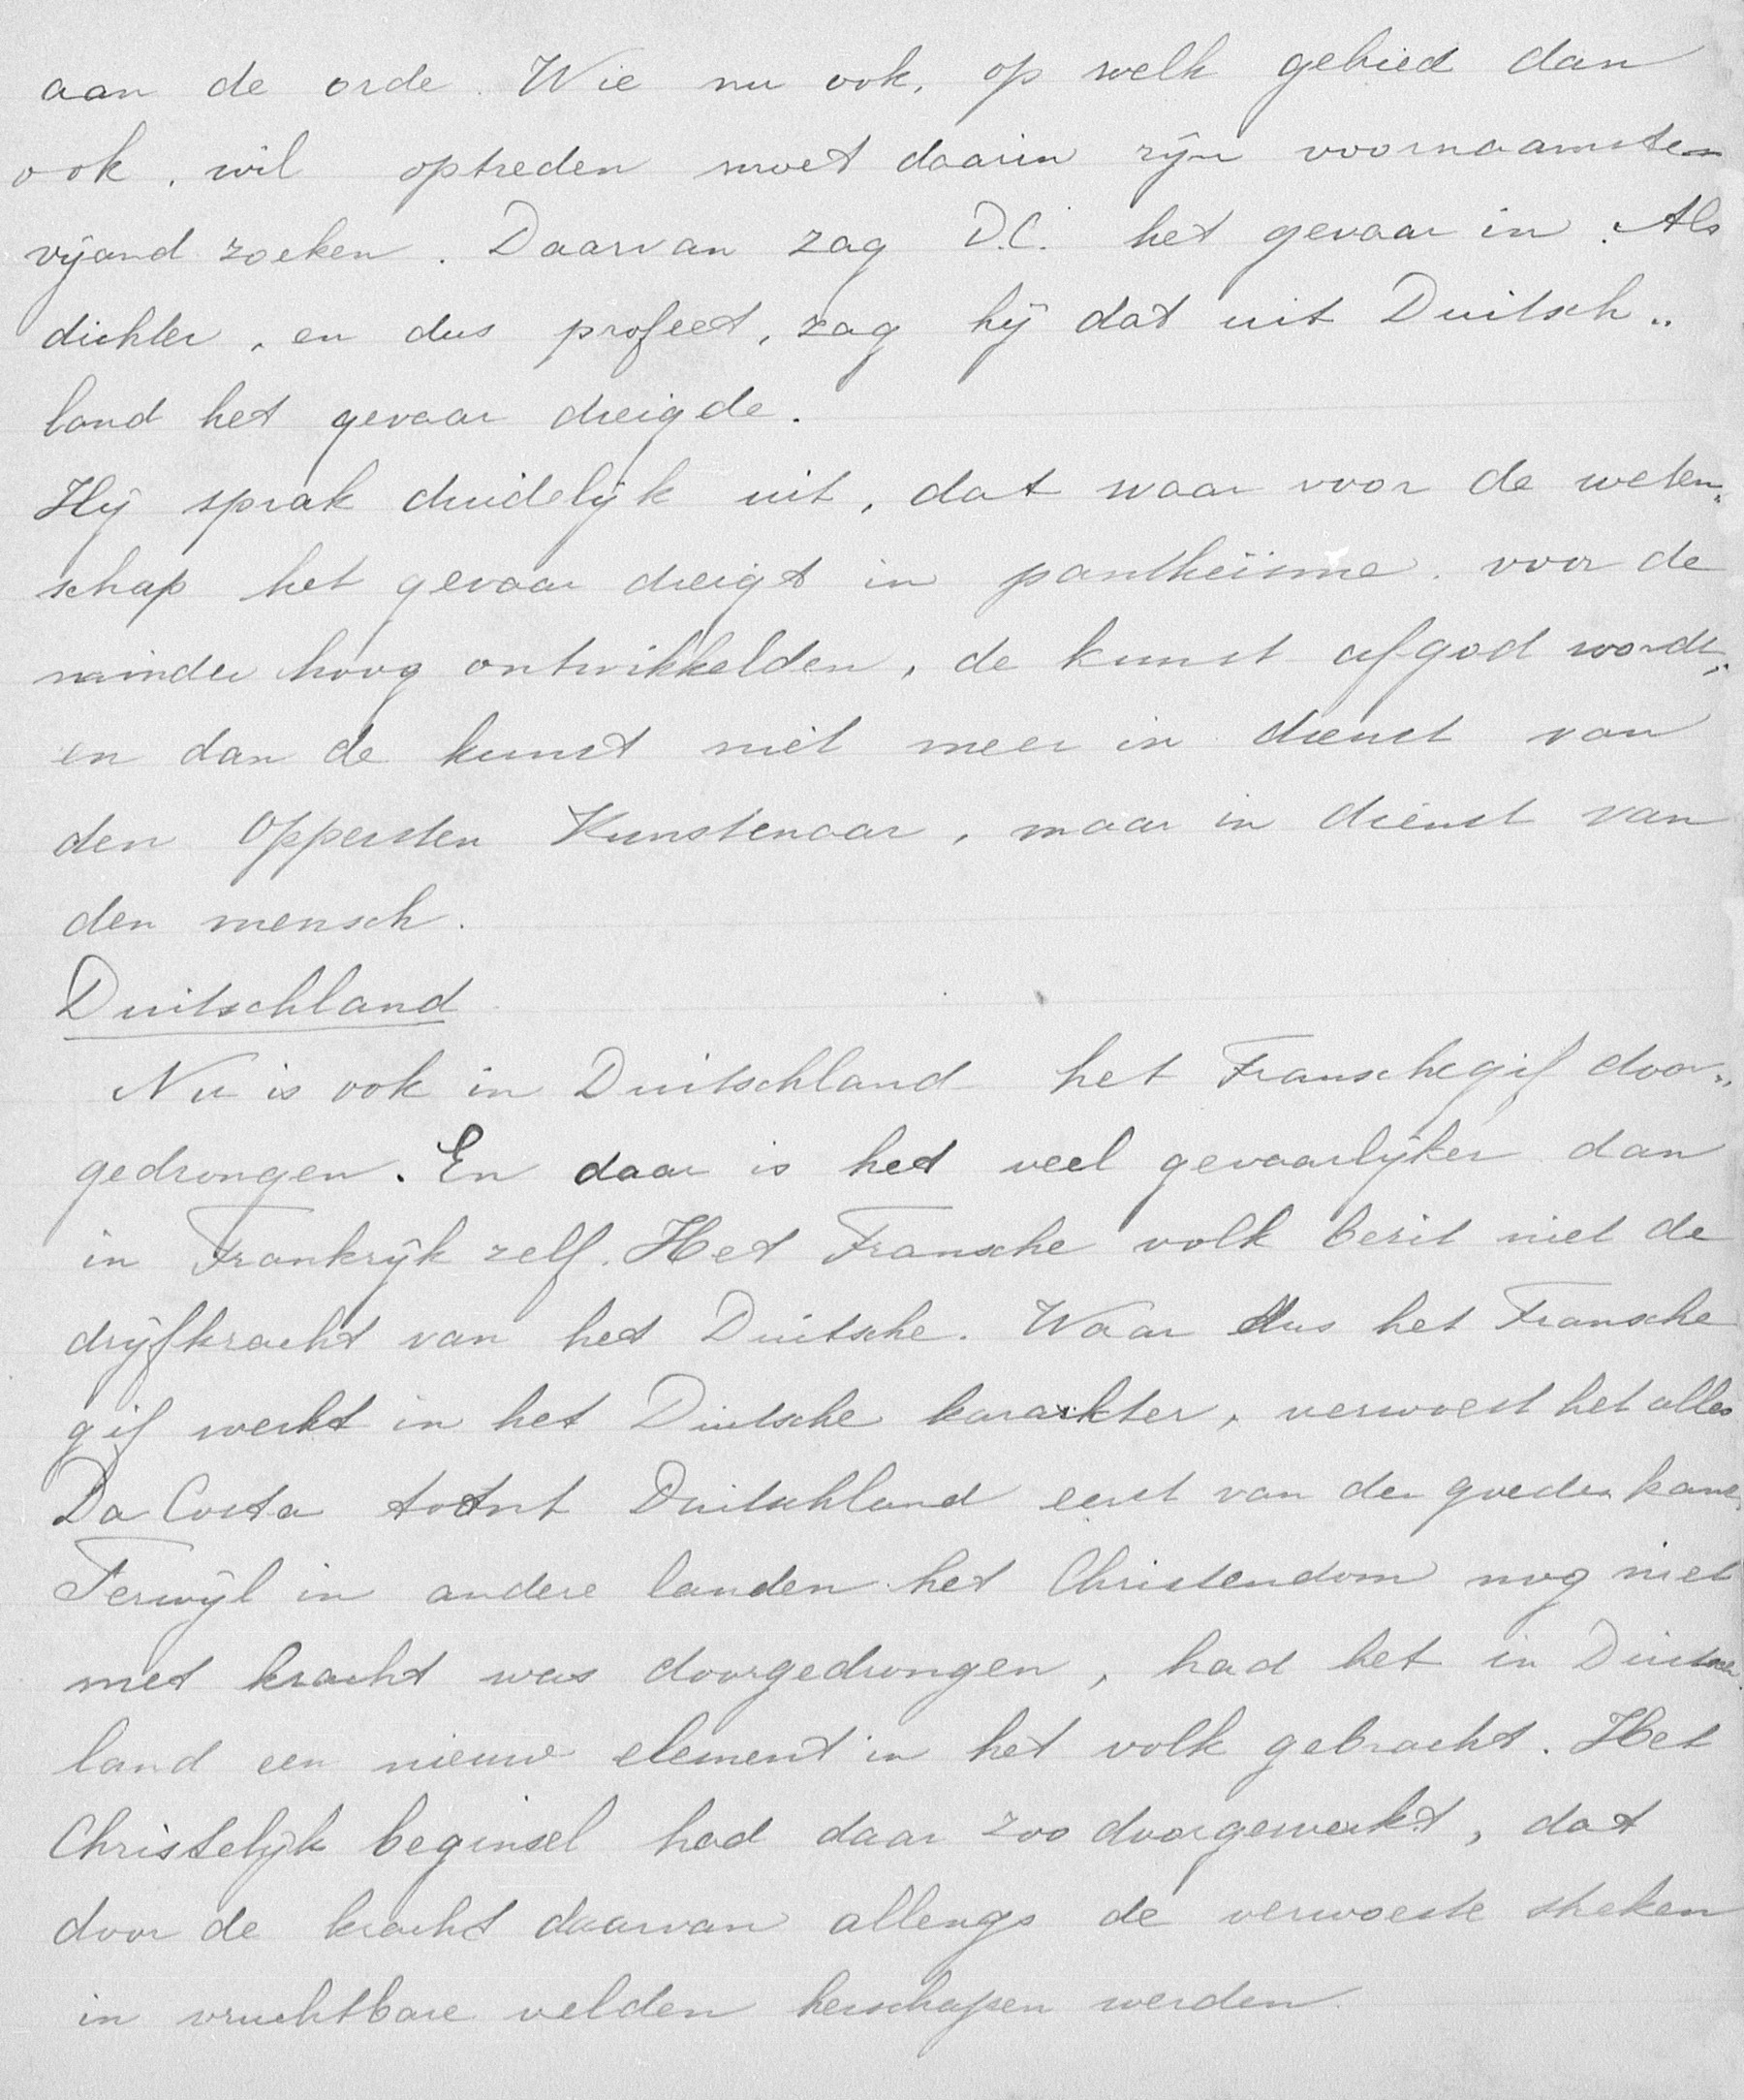 aan de orde. Wie nu ook, op welk gebied dan
ook, wil optreden moet daarin zijn voornaamsten
vijand zoeken. Daarvan zag D.C. het gevaar in. Als
dichter, en dus profeet, zag hij dat uit Duitsch„
land het gevaar dreigde.
Hij sprak duidelijk uit, dat waar voor de weten„
schap het gevaar dreigt in pantheïsme, voor de
minder hoog ontwikkelden, de kunst afgod wordt;
en dan de kunst niet meer in dienst van
den Oppersten Kunstenaar, maar in dienst van
den mensch.
Duitschland
Nu is ook in Duitschland het Fransche gif door„
gedrongen. En daar is het veel gevaarlijker dan
in Frankrijk zelf. Het Fransche volk bezit niet de
drijfkracht van het Duitsche. Waar dus het Fransche
gif werkt in het Duitsche karakter, verwoest het alles
Da Costa toont Duitschland eerst van den goeden kant.
Terwijl in andere landen het Christendom nog niet
met kracht was doorgedrongen, had het in Duitsch
land een nieuw element in het volk gebracht. Het
Christelijk beginsel had daar zoo doorgewerkt, dat
door de kracht daarvan allengs de verwoeste streken
in vruchtbare velden herschapen werden.